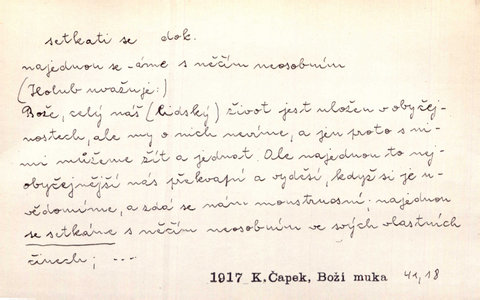 setkati se dok.
najednou se -áme s něčím neosobním
(Holub uvažuje:)
Bože, celý náš (lidský) život jest uložen v obyčej-
nostech, ale my o nich nevíme, a jen proto s ni-
mi můžeme žít a jednat. Ale najednou to nej-
obyčejnější nás překvapí a vyděsí, když si je u-
vědomíme, a zdá se nám monstrusní; najednou
se setkáme s něčím neosobním ve svých vlastních
činech; ---
1917 K.Čapek, Boží muka 41,18